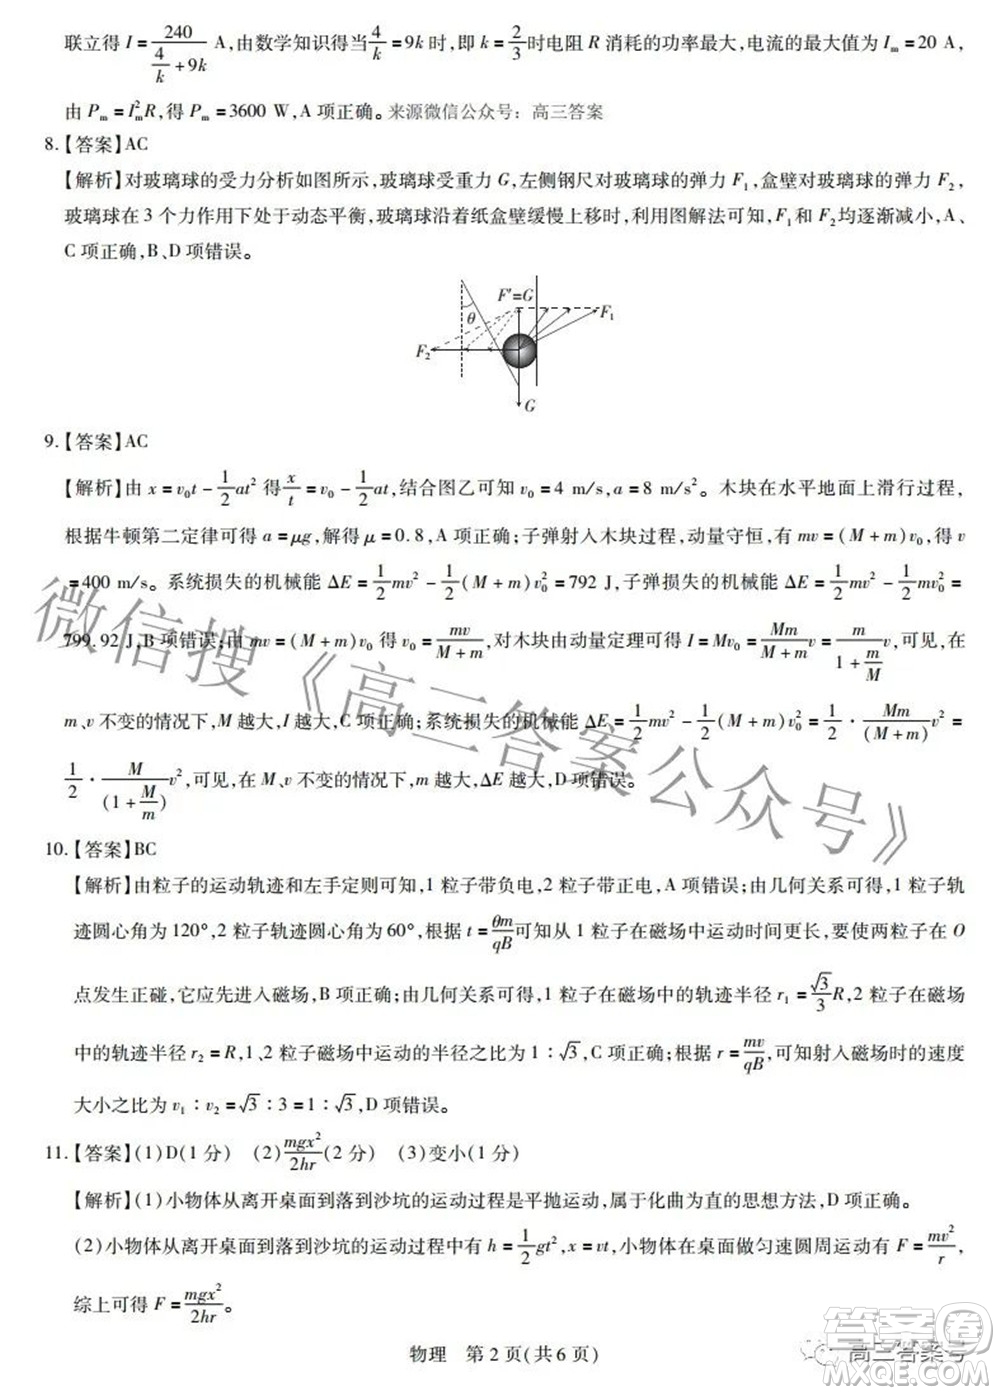 联立得 I=240/(4/k+9k) A,由数学知识得当4/k=9k时,即 k=2/3时电阻 R 消耗的功率最大,电流的最大值为 Iₘ=20 A,
由 Pₘ=Iₘ²R,得 Pₘ=3600 W,A 项正确。来源微信公众号：高三答案
8.【答案】AC
【解析】对玻璃球的受力分析如图所示,玻璃球受重力 G,左侧钢尺对玻璃球的弹力 F₁,盒壁对玻璃球的弹力 F₂,
玻璃球在 3 个力作用下处于动态平衡,玻璃球沿着纸盒壁缓慢上移时,利用图解法可知,F₁和 F₂均逐渐减小,A、
C 项正确,B、D 项错误。
F′=G
θ
F₁
F₂
G
9.【答案】AC
【解析】由 x=v₀t-1/2at² 得x/t=v₀-1/2at,结合图乙可知 v₀=4 m/s,a=8 m/s²。木块在水平地面上滑行过程,
根据牛顿第二定律可得 a=μg,解得 μ=0.8,A 项正确;子弹射入木块过程,动量守恒,有 mv=(M+m)v₀,得 v
=400 m/s。系统损失的机械能 ΔE=1/2mv²-1/2(M+m)v₀²=792 J,子弹损失的机械能 ΔE=1/2mv²-1/2mv₀²=
799.92 J,B 项错误;由 mv=(M+m)v₀ 得 v₀=mv/(M+m),对木块由动量定理可得 I=Mv₀=Mm/(M+m)v=m/(1+m/M)v,可见,在
m、v 不变的情况下,M 越大,I 越大,C 项正确;系统损失的机械能 ΔE=1/2mv²-1/2(M+m)v₀²=1/2·Mm/(M+m)v²=
1/2·M/(1+M/m)v²,可见,在 M、v 不变的情况下,m 越大,ΔE 越大,D 项错误。
10.【答案】BC
【解析】由粒子的运动轨迹和左手定则可知,1 粒子带负电,2 粒子带正电,A 项错误;由几何关系可得,1 粒子轨
迹圆心角为 120°,2 粒子轨迹圆心角为 60°,根据 t=θm/qB可知 1 粒子在磁场中运动时间更长,要使两粒子在 O
点发生正碰,它应先进入磁场,B 项正确;由几何关系可得,1 粒子在磁场中的轨迹半径 r₁=√3/3R,2 粒子在磁场
中的轨迹半径 r₂=R,1、2 粒子磁场中运动的半径之比为 1∶√3,C 项正确;根据 r=mv/qB,可知射入磁场时的速度
大小之比为 v₁∶v₂=√3∶3=1∶√3,D 项错误。
11.【答案】(1)D(1 分) (2)mgx²/2hr(2 分) (3)变小(1 分)
【解析】(1)小物体从离开桌面到落到沙坑的运动过程是平抛运动,属于化曲为直的思想方法,D 项正确。
(2)小物体从离开桌面到落到沙坑的运动过程中有 h=1/2gt²,x=vt,小物体在桌面做匀速圆周运动有 F=mv²/r,
综上可得 F=mgx²/2hr。
物理 第 2 页(共 6 页)
微信搜《高三答案公众号》
答案圈
高三答案号